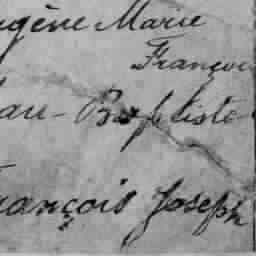 ugène Marie
Françoi
ean-Baptiste
rançois Joseph